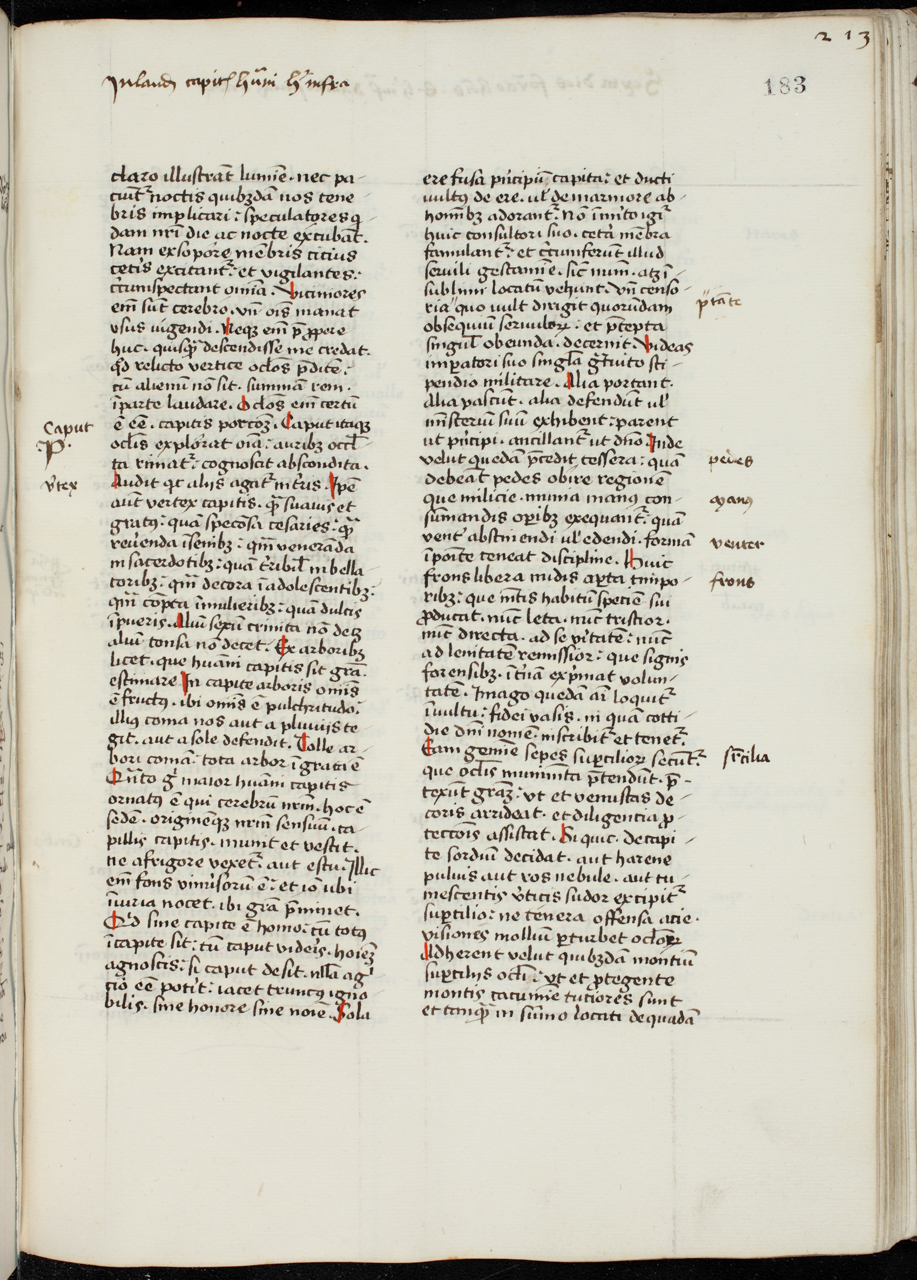 213
In laudem capitis hūani h' infra
183
claro illustrāt lumīe · nec pa-
ciūt᷑ noctis quibzdā nos tene
bris implicari : speculatores q̄
dam nr̄i die ac nocte excubāt.
Nam exsopōre mēbris citius
cetīs excitant᷑ : et vigilantes :
cc̄umspectant om̄ia. Vicimores
em̄ sunt cerebro · vn̄ ois manat
vsus uigendi. Neqz em̄ p̄ppere
huc · quisq̄ descendisse me credat.
qd relicto vertice oclōs p̄ditē :
cū alienū nō sit · summam rem ·
ī parte laudare. Oclōs em̄ certū
ē eē · capitis porcōz. Caput itaqz
oclīs explorat oīa : auribz occl̄
ta rimat᷑ : cognoscit abscondita.
Audit qc alijs agat᷑ in tr̄is. Ipē
aūt vertex capitis · q̄ suauis et
gratus : quā speciosa cesaries : q̄
reu̓enda īsenibz : qm̄ veneranda
in sacerdotibz : quā tr̓ribil̄ in bella-
toribz : qm̄ decora ī adolescentibz :
qm̄ cōpta ī mulieribz : quā dulcis
ī pueris. Aliū sexū crinita nō decz
aliū tonsa nō decet. Ex arboribz
licet · que hūani capitis sit grā ·
estimare In capite arboris om̄is
ē fructus · ibi om̄is ē pulchritudo :
illius coma nos aut a pluuijs te-
git · aut a sole defendit. Tolle ar-
bori comā : tota arbor ī grata ē
Quāto g̓ maior hūani capitis
ornatus ē qui cerebrū nrm̄ · hoc ē
sedē · originēqz nrm̄ sensuū · ca-
pillis capitis · munit et vestit ·
ne a frigore vexet᷑ · aut estu. Illic
em̄ fons vniu̓sorū ē : et iō ubi
īiuria nocet · ibi grā p̄minet.
Qid sine capite ē homo : cū totus
ī capite sit : cū caput videris · hoiēz
agnoscis : si caput desit · nlla ag̓-
cio eē potit : iacet truncus igno-
bilis · sine honore sine noīe. Sola
Caput
P.
v̓tex
ere fusa pr̓incipū capita : et ducti
uultus de ere · ul̓ de marmore ab
homībz adorant᷑. Nō īmīto igr̄
huic consultori suo · cetā mēbra
famulant᷑ : et cc̄umferūt illud
seruili gestamīe · sic num · atz ī
sublimi locatū vehunt · vn̄ censo-
ria" quo uult dirigit quorūdam
obsequiū seruulorz : et p̄cepta
singul̄ obeunda · decernit. Videas
imp̄atori suo singl̓a g̓tuito sti-
pendio militare. Alia portant.
Alia pascūt · alia defendūt ul̓
mīsteriū suū exhibent : parent
ut pr̓incipi · ancillant᷑ ut dn̄o. Inde
velut quedā p̄cedit tessera : quā
debeāt pedes obire regionē
que milicie · munia manus con-
sūmandis op̄ibz exequant᷑ : quā
vent̓ abstinendi ul̓ edendi · formā
ī poīte teneat discipline. Huic
frons libera nudis ap̄ta tmpo-
ribz : que mtis habitū speciē sui
p̄ducat · nūc leta · nūc tristior ·
nūc directa · ad seu̓itatē : nūc
ad lenitatē remissior : que signis
forensibz · ītnā exp̄mat volun-
tatē. Imago quedā aī loquit᷑
ī vultu : fidei vasis · in quā cotti-
die dn̄i nomē · inscribit᷑ et tenet᷑.
Eam gemīe sepes sup̄ciliorz secūt᷑
que oclīs munimīta p̄tendūt · p̄-
texūt grāz : vt et venustas de-
coris arrideat · et diligentia p̄-
tectois assistat. Si quic · de capi-
te sordiū decidat · aut harene
puluis aut ros nebule · aut tu-
mescentis v̓ticis sudor excipit᷑
sup̄cilio : ne tenera offensa acie ·
visiones molliū p̄turbet oclorz
Adherent velut quibzdā montiū
sup̄cilijs ocli : vt et p̄tegente
montis cacumīe tuciores sunt
et tanq̄ in sūmo locati de quadā
"p̄tāte
pedes
manus
venter
frons
sup̄cilia